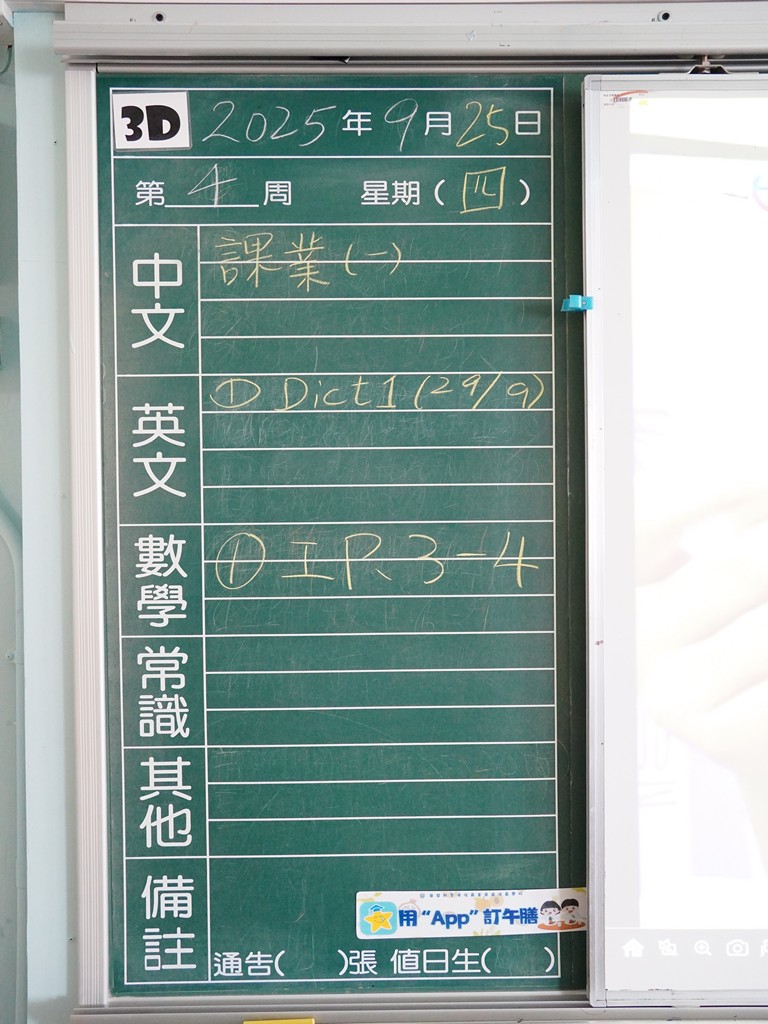 3D 2025年9月25日
第4周 星期(四)
中文 課業(一)
英文 ① Dict 1 (29/9)
數學 ① I P.3-4
常識
其他
備註
用“App”訂午膳
通告( )張 值日生( )